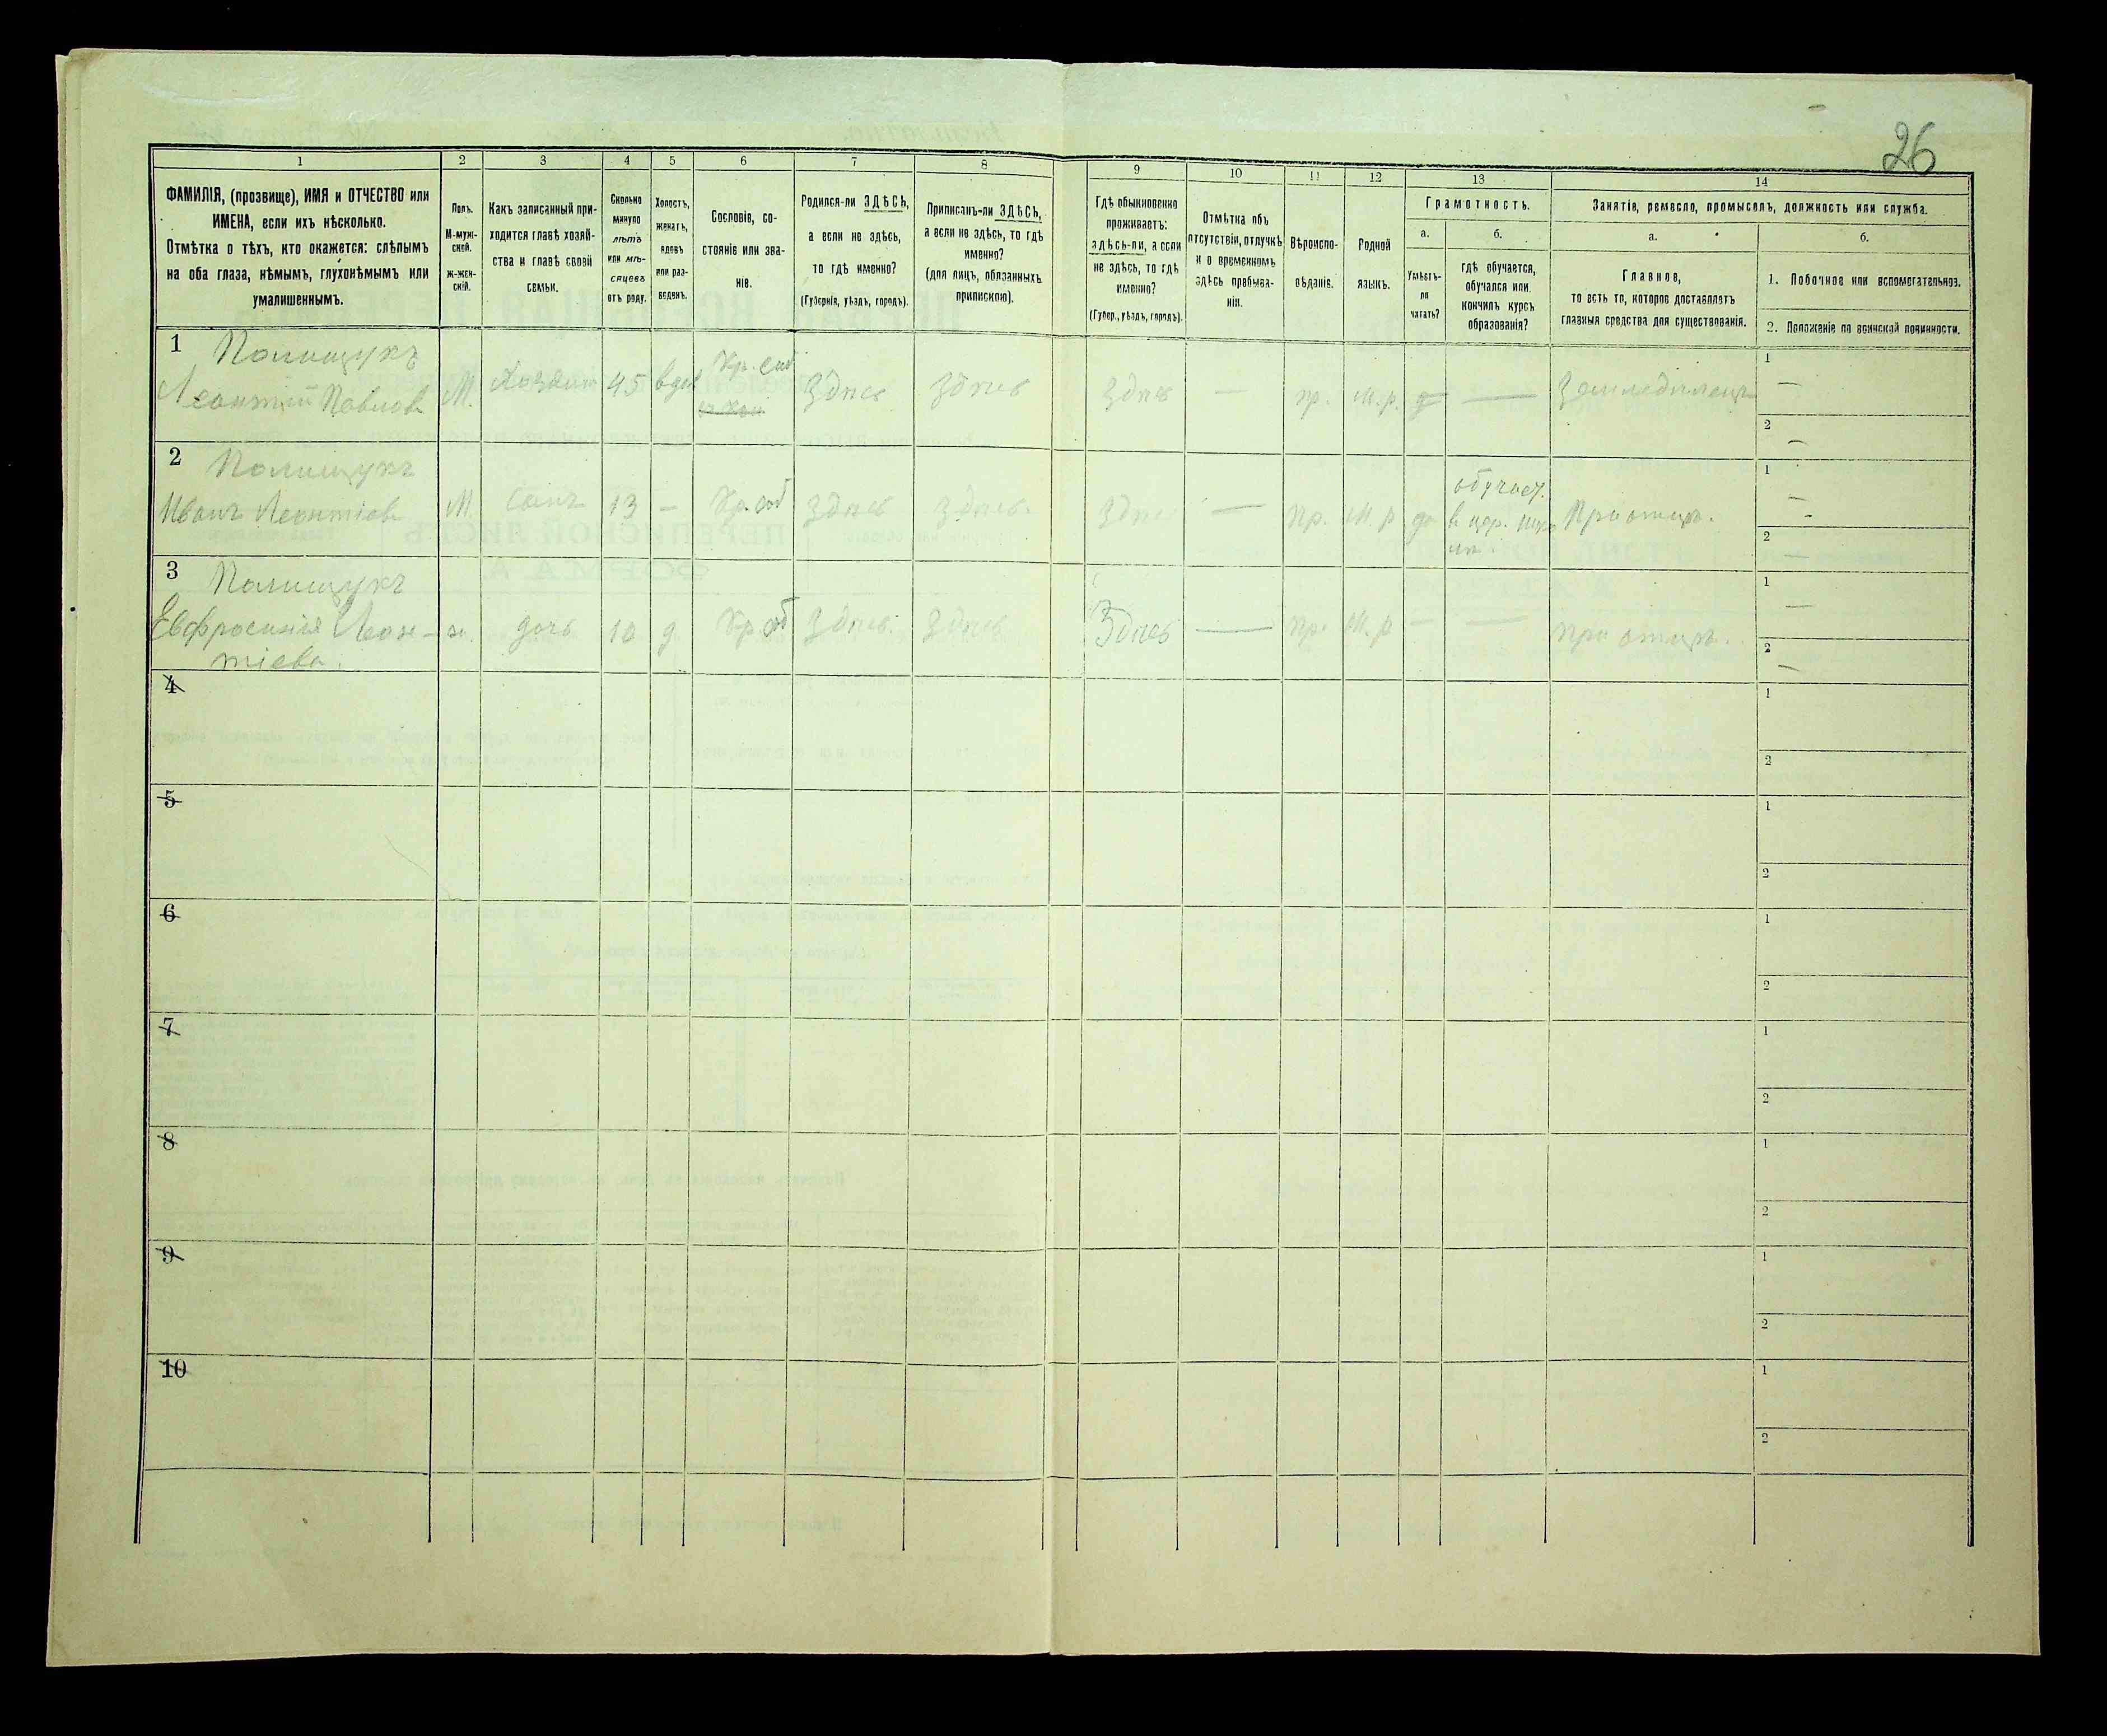 26
1 2 3 4 5 6 7 8 9 10 11 12 13 14
ФАМИЛІЯ, (прозвище), ИМЯ и ОТЧЕСТВО или
ИМЕНА, если ихъ нѣсколько.
Отмѣтка о тѣхъ, кто окажется: слѣпымъ
на оба глаза, нѣмымъ, глухонѣмымъ или
умалишеннымъ.
Полъ.
М-муж-
ской.
ж-жен-
скій.
Какъ записанный при-
ходится главѣ хозяй-
ства и главѣ своей
семьи.
Сколько
минуло
лѣтъ
или мѣ-
сяцевъ
отъ роду.
Холостъ,
женатъ,
вдовъ
или раз-
веденъ.
Сословіе, со-
стояніе или зва-
ніе.
Родился-ли ЗДѢСЬ,
а если не здѣсь,
то гдѣ именно?
(Губернія, уѣздъ, городъ).
Приписанъ-ли ЗДѢСЬ,
а если не здѣсь, то гдѣ
именно?
(для лицъ, обязанныхъ
припискою).
Гдѣ обыкновенно
проживаетъ:
здѣсь-ли, а если
не здѣсь, то гдѣ
именно?
(Губер., уѣздъ, городъ).
Отмѣтка объ
отсутствіи, отлучкѣ
и о временномъ
здѣсь пребыва-
ніи.
Вѣроиспо-
вѣданіе.
Родной
языкъ.
Грамотность.
а.
Умѣетъ-
ли
читать?
б.
гдѣ обучается,
обучался или
кончилъ курсъ
образованія?
Занятіе, ремесло, промыселъ, должность или служба.
а.
Главное,
то есть то, которое доставляетъ
главныя средства для существованія.
б.
1. Побочное или вспомогательное.
2. Положеніе по воинской повинности.
1 Полищукъ
Леонтій Павлов
М. Хозяин 45 вдов Кр. соб Здпсь здпсь Здпсь — пр. м.р. — Земледѣлецъ
1 —
2 —
2 Полищукъ
Иванъ Леонтіев
М. сынъ 13 — Кр. соб здпсь здпсь. здпсь — пр. м. р да
обучает.
в цер. шко
лѣ.
При отцѣ.
1 —
2 —
3 Полищукъ
Евфросинія Леон-
тіева.
ж. дочь 10 д. Кр соб Здпсь. Здпсь Здпсь — пр. м. р — — при отцѣ.
1 —
2 —
4
1
2
5
1
2
6
1
2
7
1
2
8
1
2
9
1
2
10
1
2